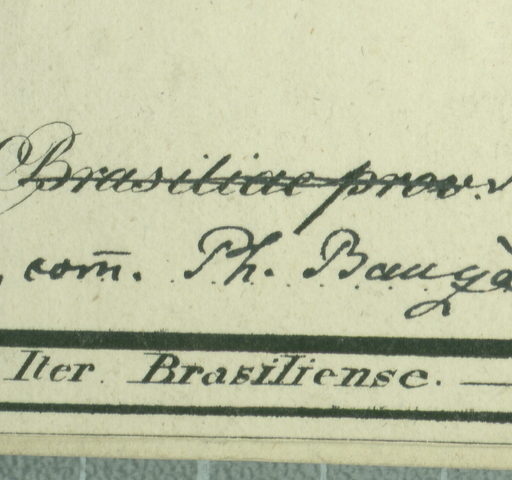 Brasiliae prov.
, com̄. Ph. Baugè
Iter Brasiliense.